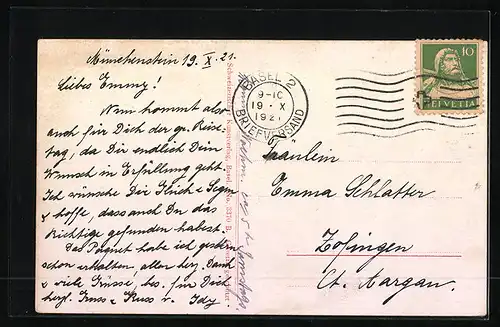 Münchenstein 19. X. 21.
Liebes Emmy!
Nun kommt also
auch für Dich der gr. Reise-
tag, da Dir endlich Dein
Wunsch in Erfüllung geht.
Ich wünsche Dir Glück & Segen
& hoffe, dass auch Du das
Richtige gefunden habest.
Das Paquet habe ich gestern
schon erhalten, allen herz. Dank
& viele Grüsse, bes. für Dich
herzl. Gruss & Kuss v. Idy.
Schweizerischer Kunstverlag, Basel No. 3370 B.
BASEL 2
9-10
19. X
1921
BRIEFVERSAND
10
HELVETIA
Fräulein
Emma Schlatter
Zofingen
Ct. Aargau.